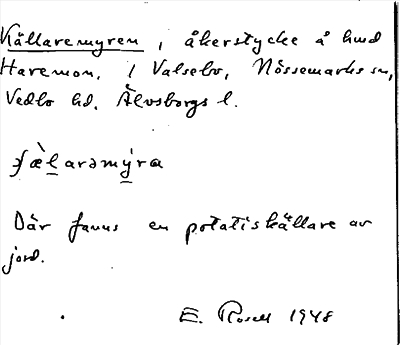 Källaremyren, åkerstycke å hmd
Haremon, i Valsebo, Nössemarks sn,
Vedbo hd. Älvsborgs l.
ɟæ̀l̠arəmý̠ra
Där fanns en potatiskällare av
jord.
E. Rosell 1948